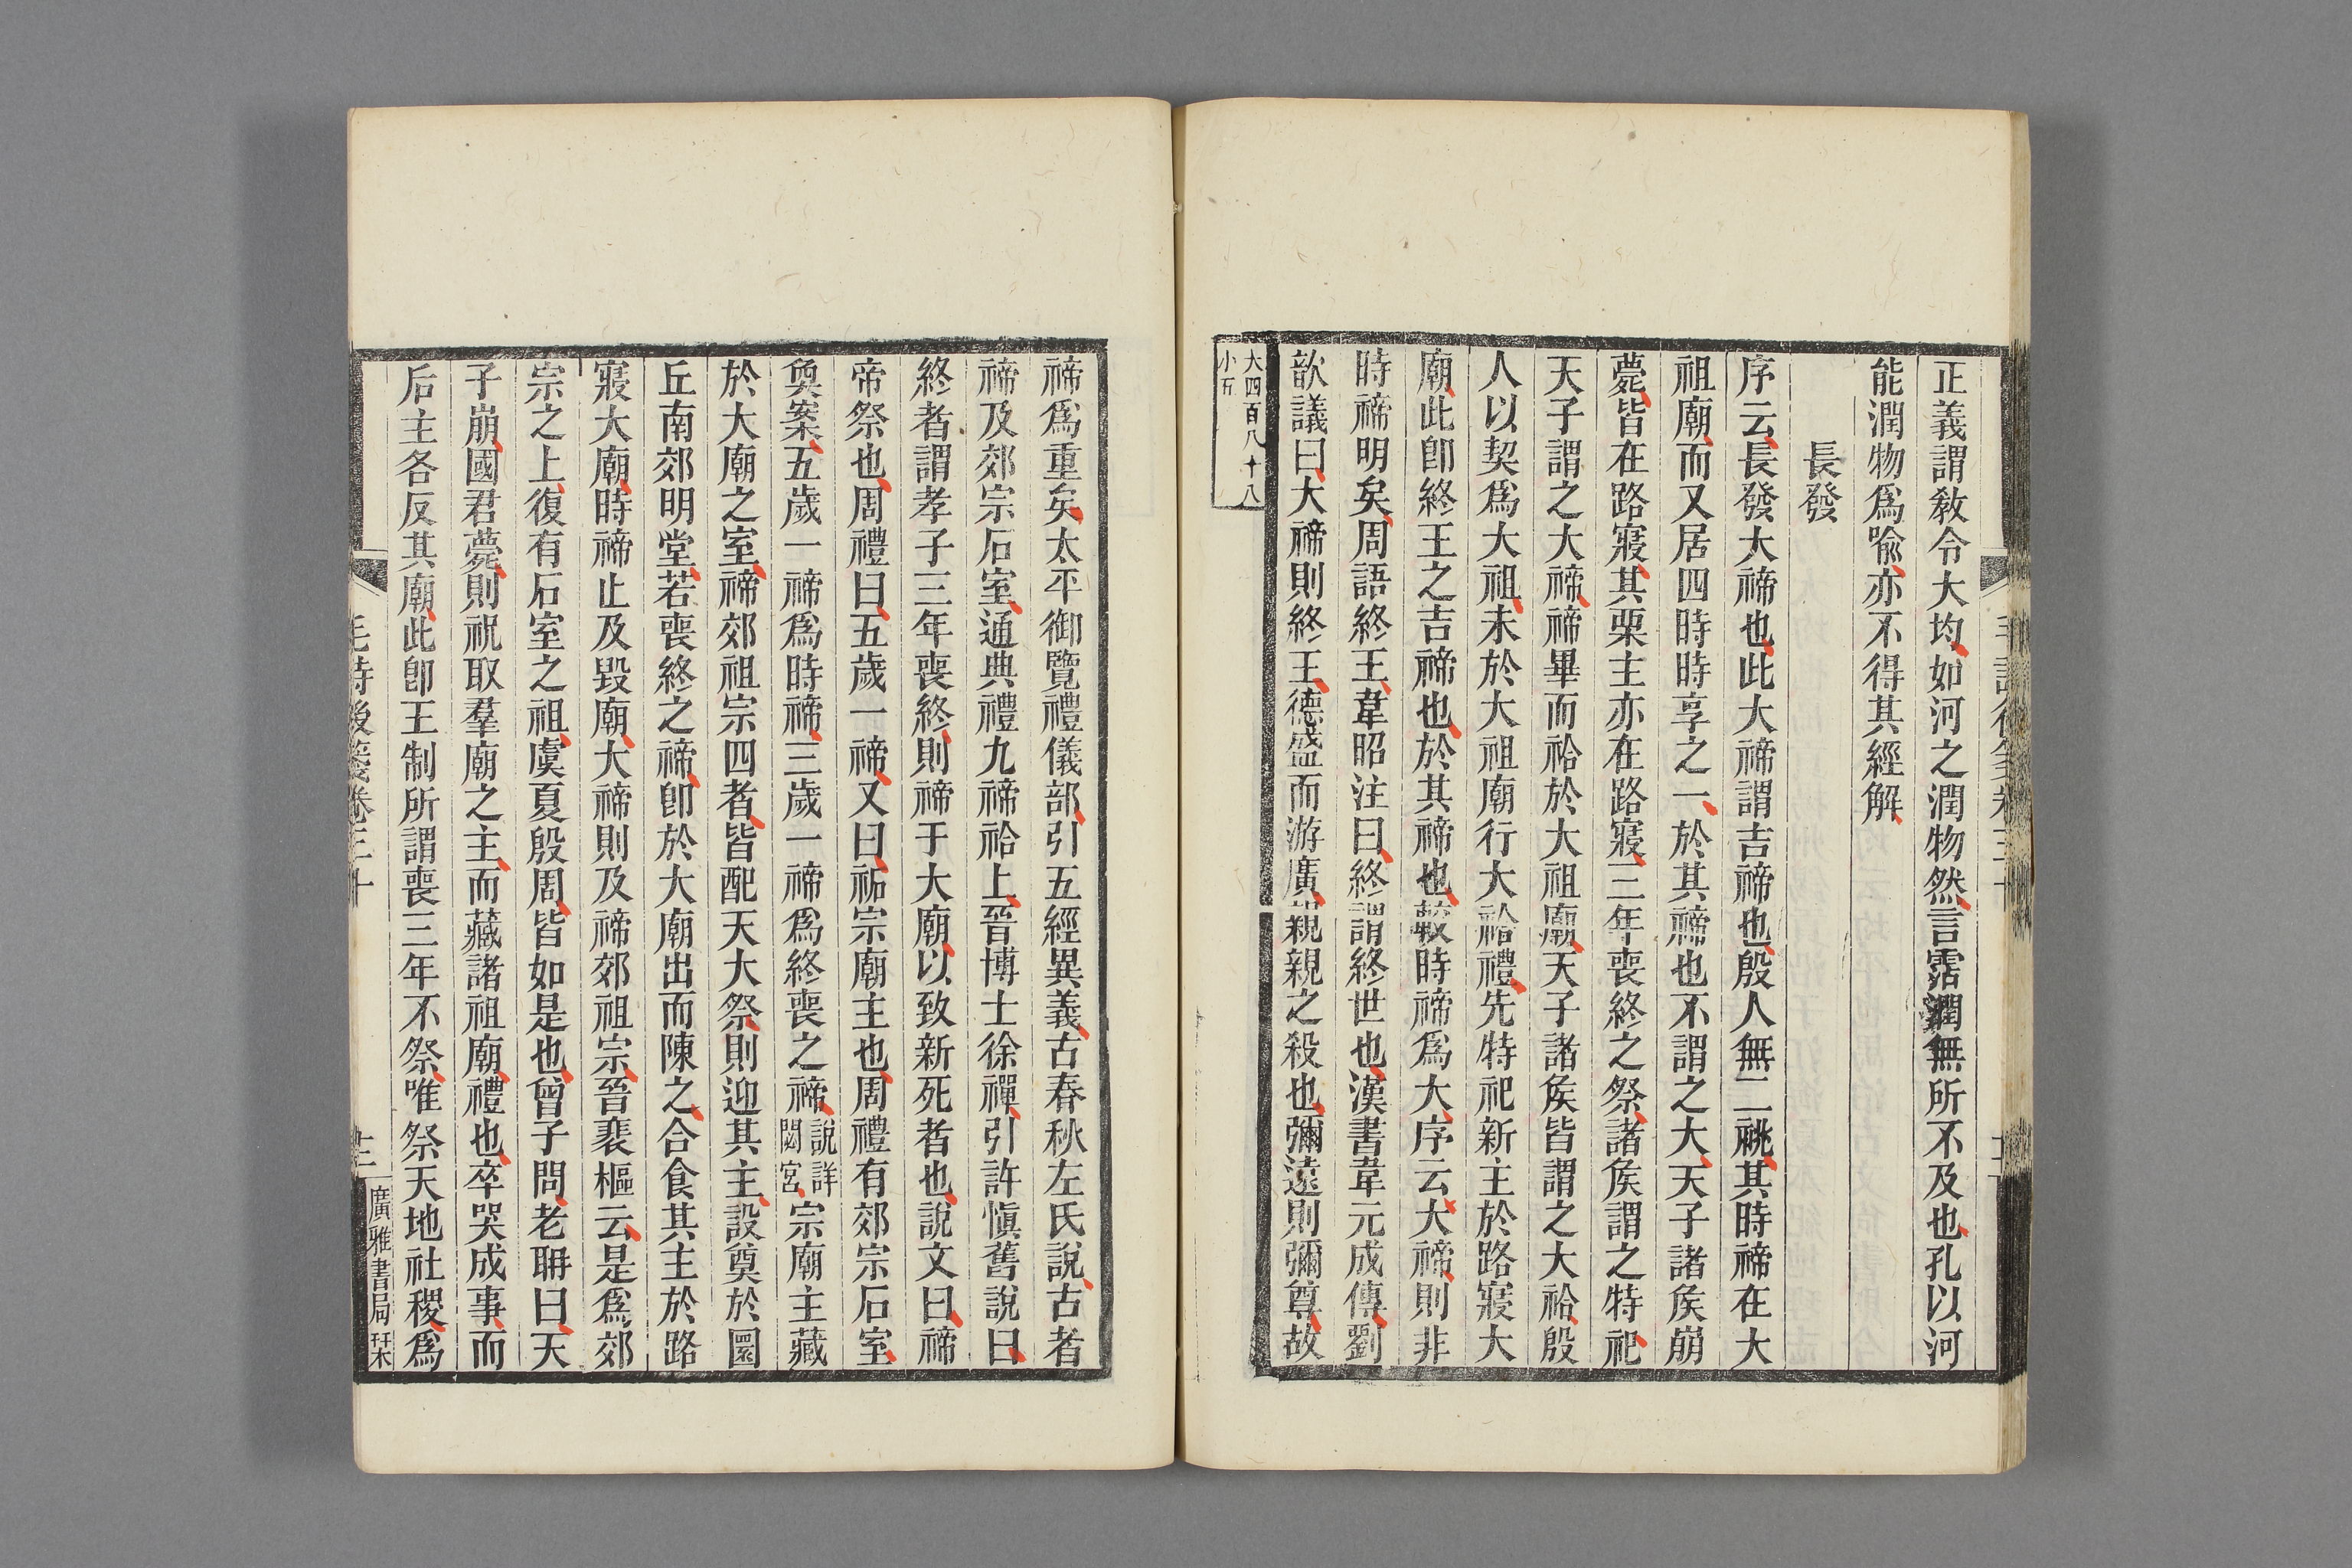 正義謂敎令大均如河之潤物然言霑潤無所不及也孔以河
能潤物爲喩亦不得其經解
長發
序云長發大禘也此大禘謂吉禘也殷人無二祧其時禘在大
祖廟而又居四時時享之一於其禘也不謂之大天子諸矦崩
薨皆在路寢其栗主亦在路寢三年喪終之祭諸矦謂之特祀
天子謂之大禘禘畢而祫於大祖廟天子諸矦皆謂之大祫殷
人以契爲大祖未於大祖廟行大祫禮先特祀新主於路寢大
廟此卽終王之吉禘也於其禘也較時禘爲大序云大禘則非
時禘明矣周語終王韋昭注曰終謂終世也漢書韋元成傳劉
歆議曰大禘則終王德盛而游廣親親之殺也彌遠則彌尊故
大四百八十八
小五
禘爲重矣太平御覽禮儀部引五經異義古春秋左氏說古者
禘及郊宗石室通典禮九禘祫上晉博士徐禪引許愼舊說曰
終者謂孝子三年喪終則禘于大廟以致新死者也說文曰禘
帝祭也周禮曰五歲一禘又曰祏宗廟主也周禮有郊宗石室
奐案五歲一禘爲時禘三歲一禘爲終喪之禘說詳閟宮宗廟主藏
於大廟之室禘郊祖宗四者皆配天大祭則迎其主設奠於圜
丘南郊明堂若喪終之禘卽於大廟出而陳之合食其主於路
寢大廟時禘止及毀廟大禘則及禘郊祖宗晉裴樞云是爲郊
宗之上復有石室之祖虞夏殷周皆如是也曾子問老聃曰天
子崩國君薨則祝取羣廟之主而藏諸祖廟禮也卒哭成事而
后主各反其廟此卽王制所謂喪三年不祭唯祭天地社稷爲
毛詩後箋卷三十
廣雅書局栞